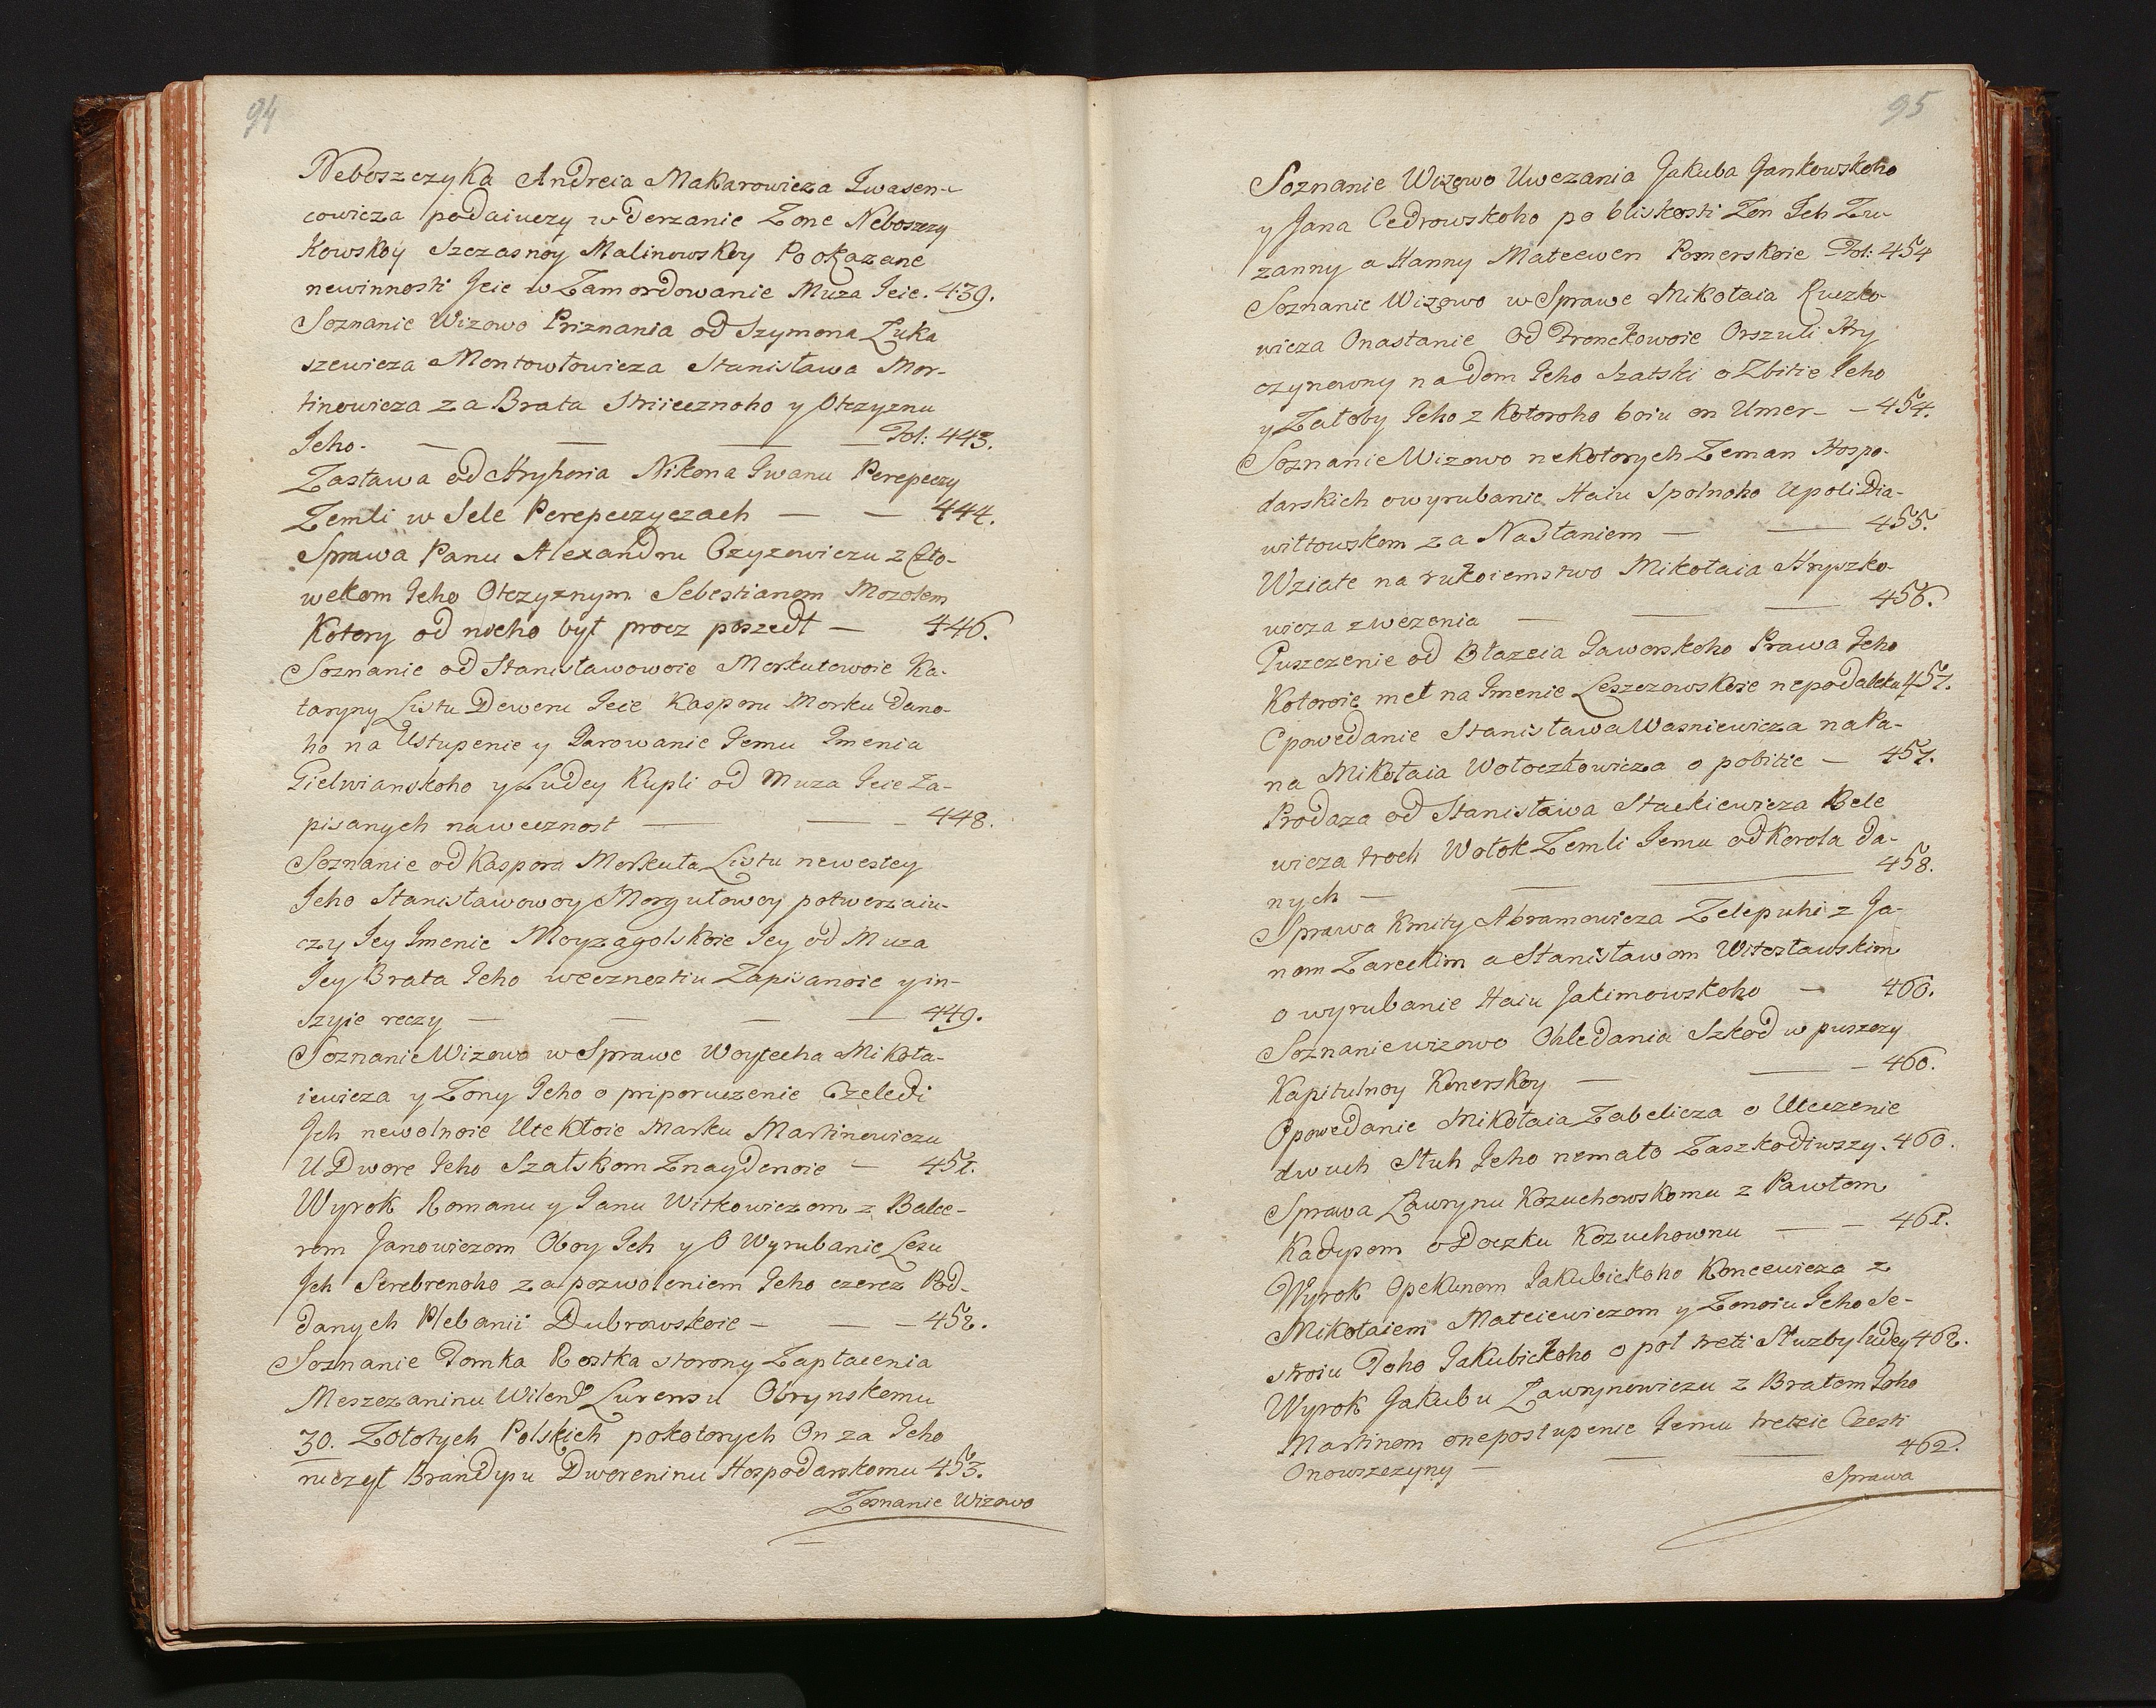 94
Neboszczyka Andreia Makarowicza Iwasen-
cowicza podaiuczy w derzanie Zone Neboszczy
kowskoy Szczasnoy Malinowskoy Po okazane
newinnosti Jeie w Zamordowanie Muza Jeie. 439.
Soznanie Wizowo Priznania od Szymona Łuka
szewicza Montowtowicza Stanisława Mor-
tinowicza za Brata Striiecznoho y Otczyznu
Jeho. — — — — Fol: 443.
Zastawa od Hryhoria Nikona Iwanu Perepeczy
Zemli w Sele Perepeczyczach — — 444.
Sprawa Panu Alexandru Czyzewiczu z Czło-
wekom Jeho Otczyznym Sebestianom Mozolem
Kotory od nieho był procz poszedł — 446.
Soznanie od Stanisławowoie Morkutowoie Ka-
taryny Listu Deweru Jeie Kasporu Morku dano-
ho na Ustupenie y Darowanie Jemu Imenia
Gielwianskoho y Ludey Kupli od Muza Jeie Za-
pisanych nawecznost — — — 448.
Soznanie od Kaspora Morkuta Listu newestcy
Jeho Stanisławowoy Morgutowoy potwerzaiu-
czy Jey Imenie Moyzagolskoie Jey od Muza
Jey Brata Jeho wecznostiu Zapisanoie y in-
szyie reczy — — — — 449.
Soznanie Wizowo w Sprawe Woytecha Mikoła-
iewicza y Zony Jeho o priporuczenie Czeledi
Jch newolnoie Utekłoie Marku Martinowiczu
U Dwore Jeho Szatskom Znaydenoie — 451.
Wyrok Romanu y Janu Witkowiczom z Balce-
rom Janowiczom Oboy Jch y O Wyrubanie Lesu
Jch Serebrenoho za pozwoleniem Jeho czerez Pod-
danych Plebanii Dubrowskoie — — — 452.
Soznanie Tomka Rostka storony Zapłacenia
Meszczaninu Wilend Lurensu Obrynskomu
30. Zołotych Polskich pokotorych On za Jeho
ruczył Brandysu Dworeninu Hospodarskomu 453.
Zoznanie Wizowo
95
Soznanie Wizowo Uwezania Jakuba Jankowskoho
y Jana Cedrowskoho po bliskosti Zon Jch Zu-
zanny a Hanny Mateewen Pomerskoie Fol: 454
Soznanie Wizowo w Sprawe Mikołaia Ruczko-
wicza Onastanie od Fronckowoie Orszuli Hry
czynowny na dom Jeho Szatski o Zbitie Jeho
y Załoby Jeho z Kotoroho boiu on Umer — — 454.
Soznanie Wizowo nekotorych Zeman Hospo-
darskich o wyrubanie Haiu Spolnoho U poli Dia-
wiltowskom za Nasłaniem — — 455.
Wziate na rukoiemstwo Mikołaia Hryszko-
wicza z wezenia — — — 456.
Puszczenie od Błazeia Jaworskoho Prawa Jeho
Kotoroie mel na Imenie Leszczowskoie nepodaleku 457.
Opowedanie Stanisława Wasniewicza na Pa-
na Mikołaia Wołoczkowicza o pobitie — 457.
Prodaza od Stanisława Stackiewicza Bele
wicza troch Wołok Zemli Jemu od Korola da-
nych — — — 458.
Sprawa Kmity Abramowicza Zelepuhi z Ja-
nom Zareckim a Stanisławom Witosławskim
o wyrubanie Haiu Jakimowskoho — 460.
Soznanie wizowo Ohledania Szkod w puszczy
Kapitulnoy Konerskoy — — — 460.
Opowedanie Mikołaia Zabelicza o Uteczenie
dwuch Słuh Jeho nemało Zaszkodiwszy. 460.
Sprawa Ławrynu Kozuchowskomu z Pawłom
Kadypom o Doczku Kozuchownu — — 461.
Wyrok Opekunom Jakubickoho Koncewicza z
Mikołaiem Mateiewiczom y Zonoiu Jeho Se-
stroiu Toho Jakubickoho o poł treti Słuzby ludey 462.
Wyrok Jakubu Ławrynowiczu z Bratom Jeho
Martinom o nepostupenie Jemu tretcie Czesti
Onowszczyny — — — 462.
Sprawa